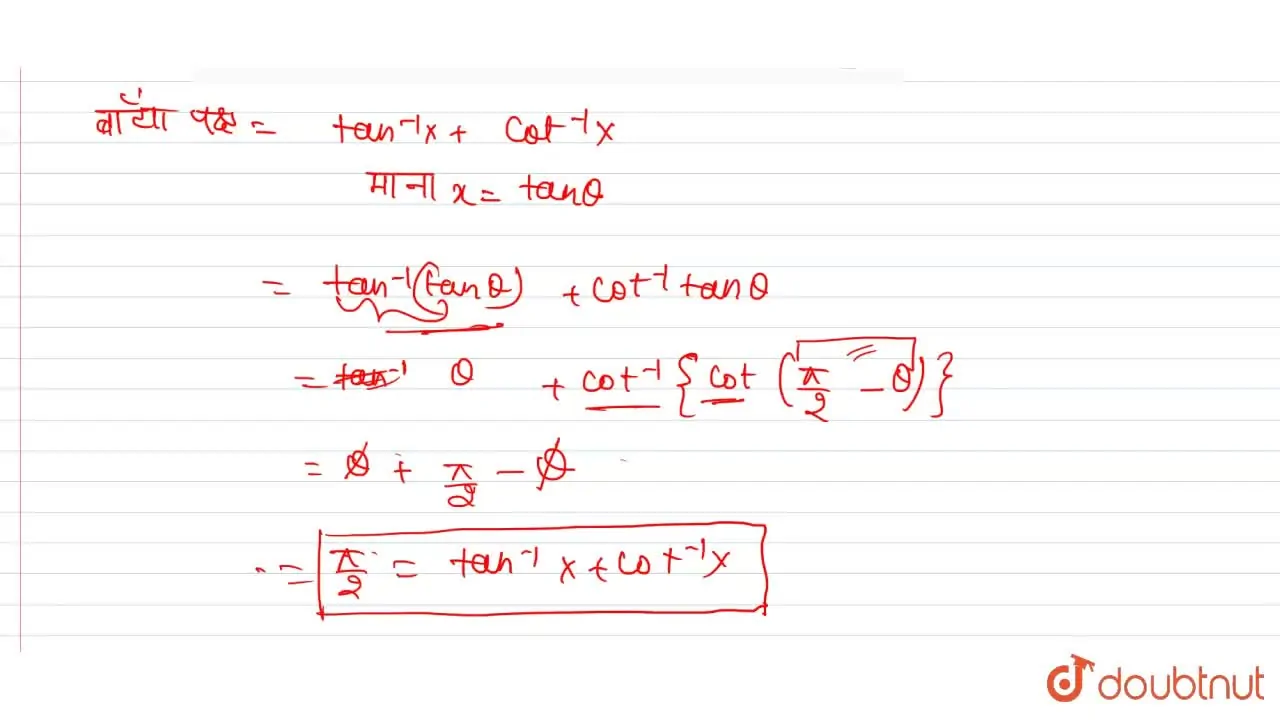 बाँया पक्ष = tan⁻¹x + cot⁻¹x
माना x = tanθ
= tan⁻¹(tanθ) + cot⁻¹ tanθ
= tan⁻¹ θ + cot⁻¹ {cot (π/2 − θ)}
= θ + π/2 − θ
∴ = π/2 = tan⁻¹ x + cot⁻¹x
doubtnut